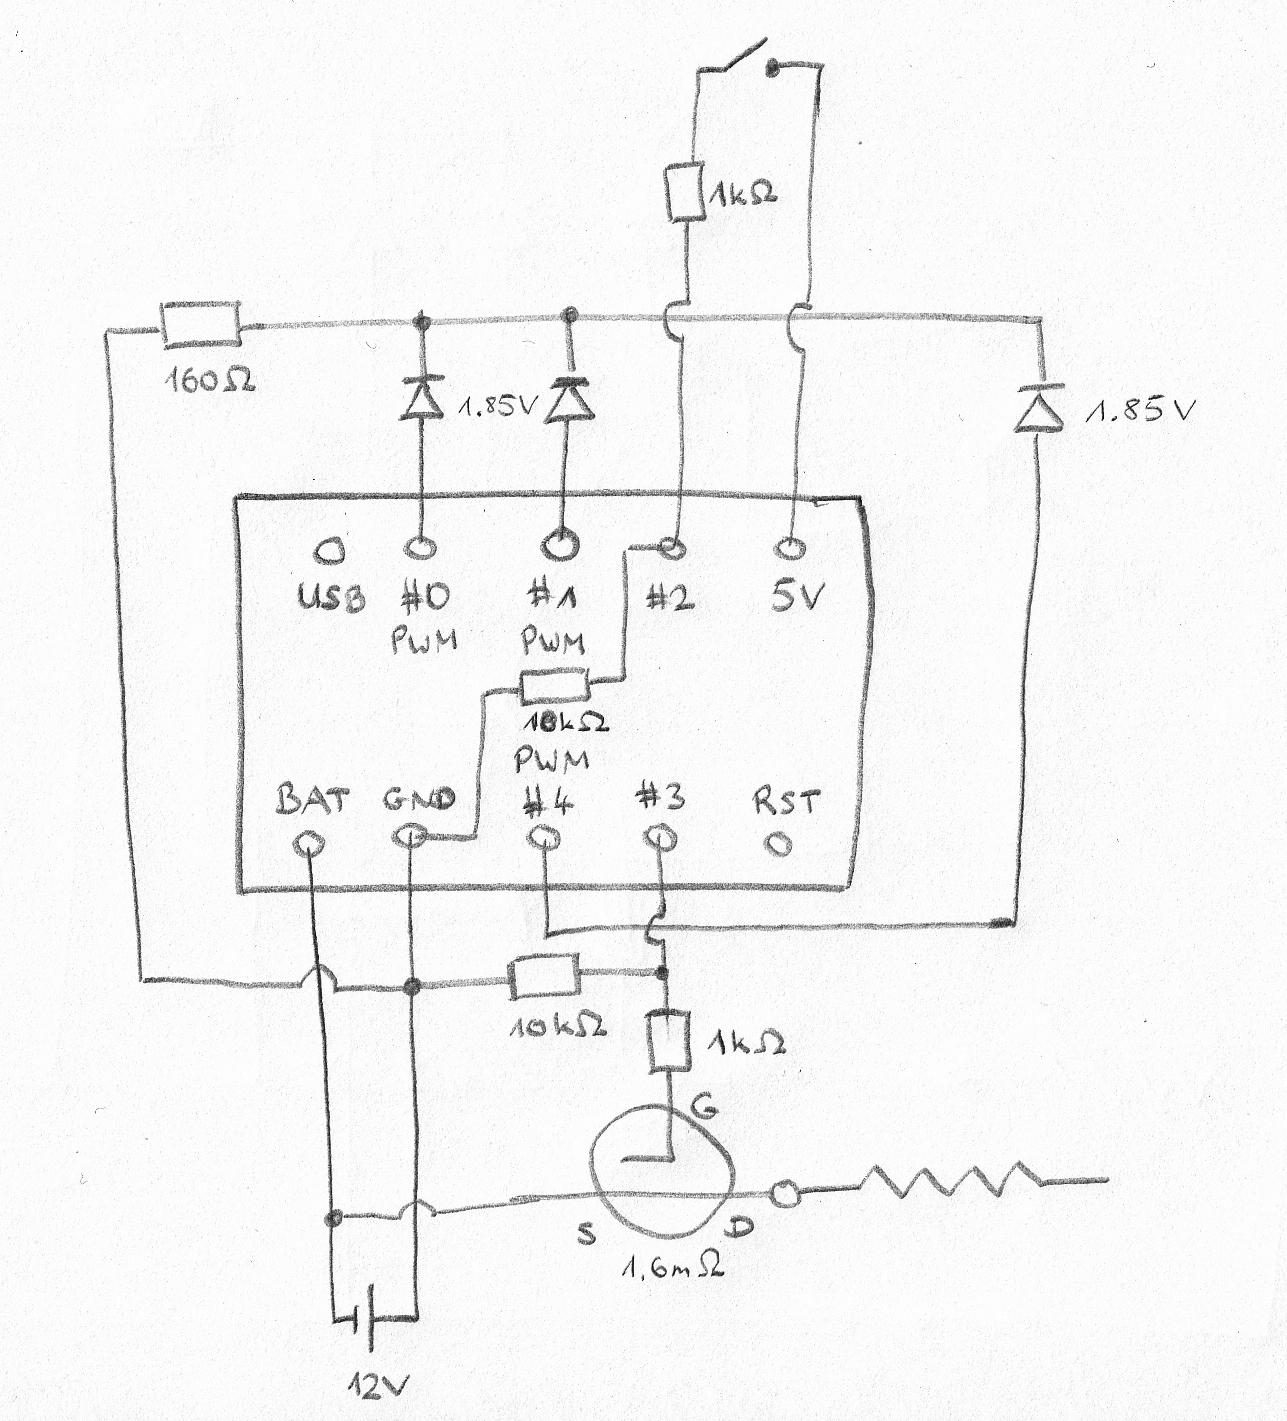 1kΩ
160Ω
1.85V
1.85V
USB #0 #1 #2 5V
PWM PWM
10kΩ
PWM
BAT GND #4 #3 RST
10kΩ
1kΩ
G
S D
1.6mΩ
12V